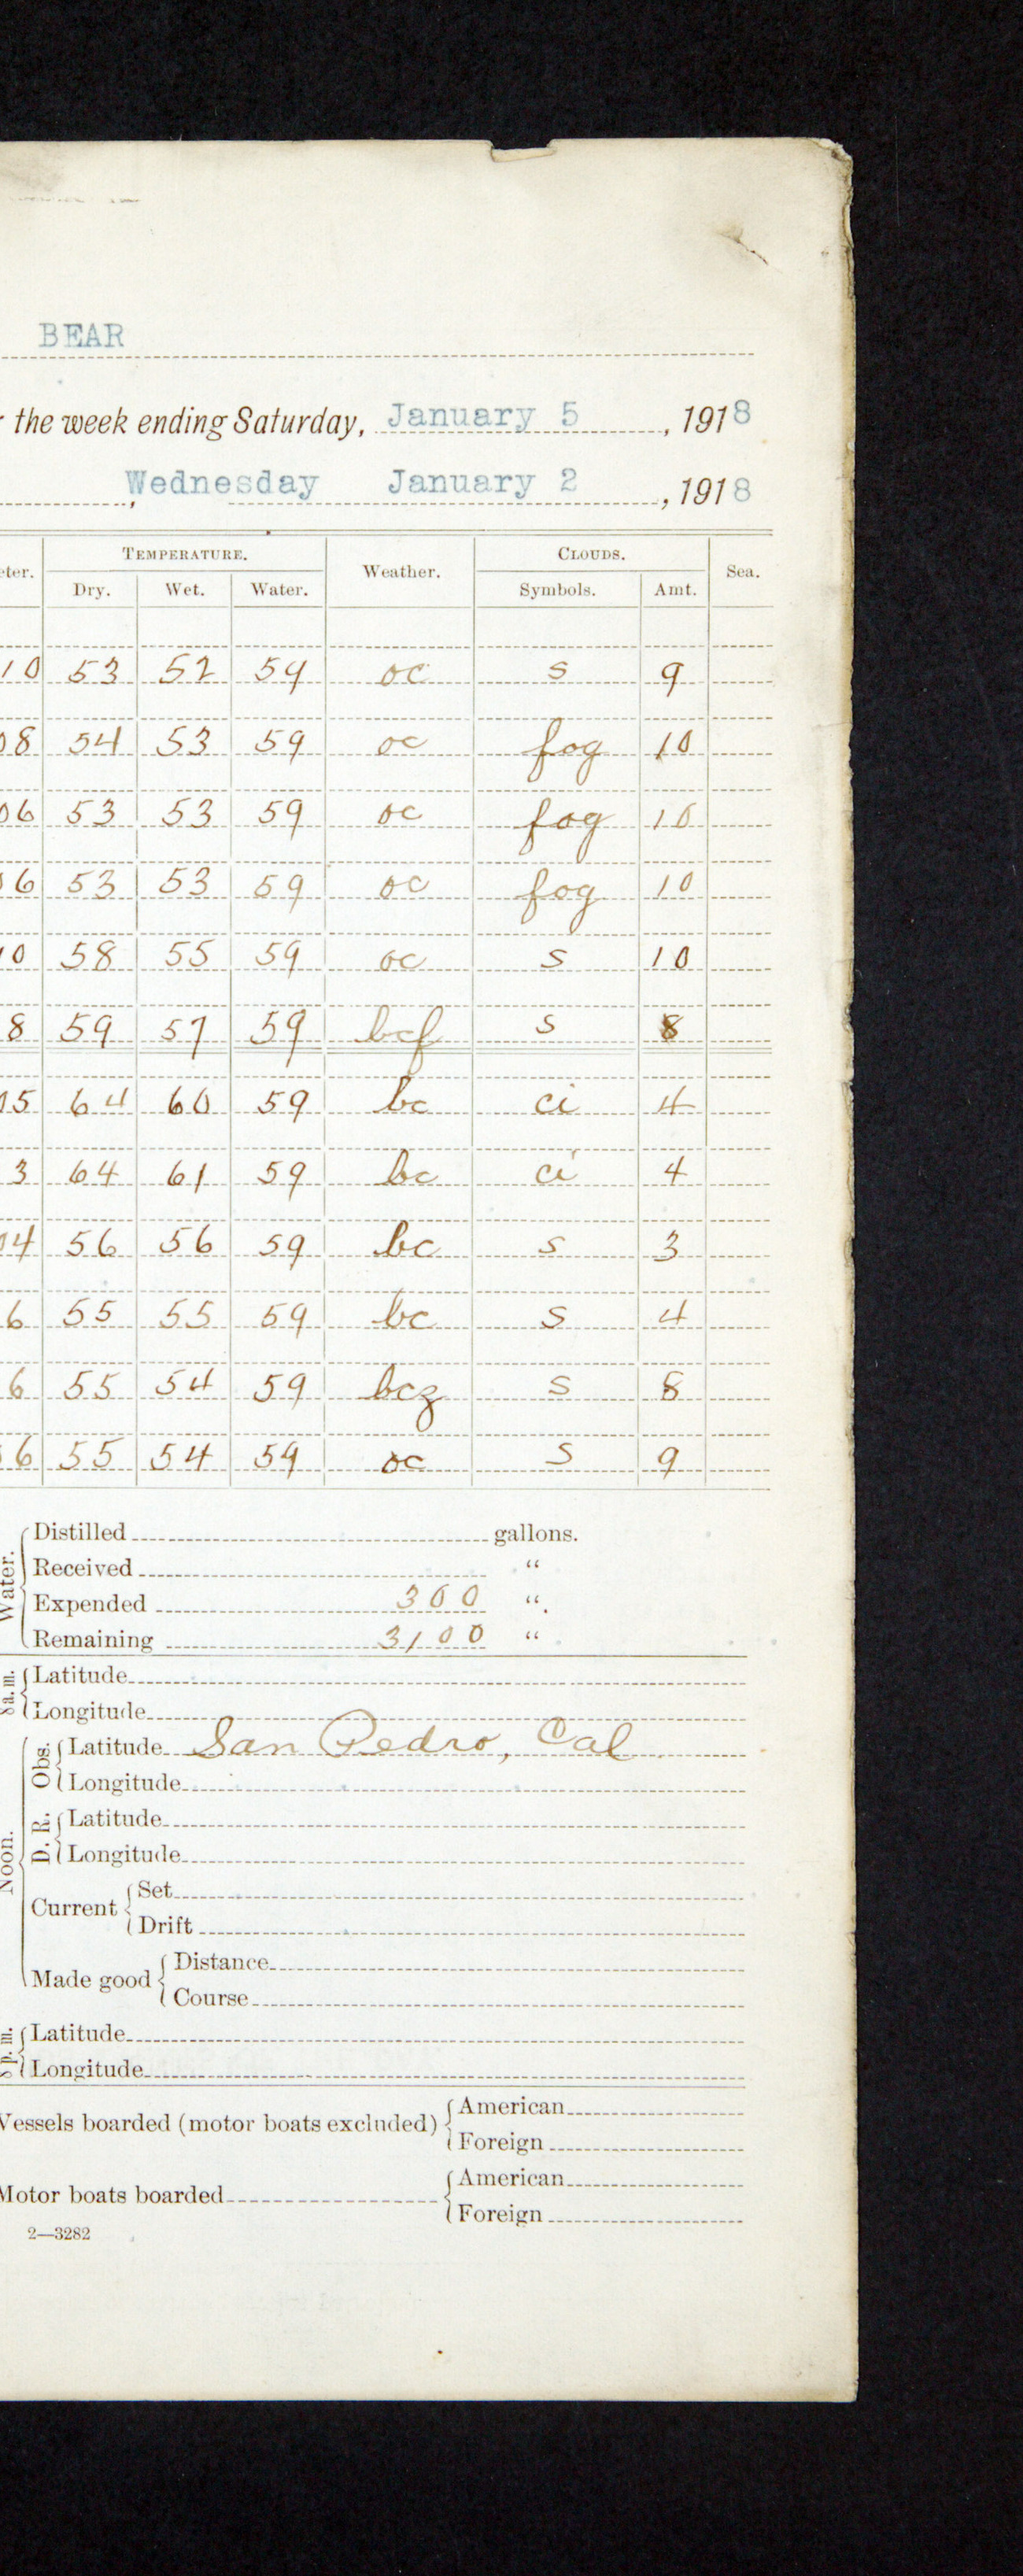 BEAR
the week ending Saturday, January 5, 1918
Wednesday January 2, 1918
eter. TEMPERATURE. Weather. CLOUDS. Sea.
Dry. Wet. Water. Symbols. Amt.
10 53 52 59 oc s 9
08 54 53 59 oc fog 10
06 53 53 59 oc fog 10
6 53 53 59 oc fog 10
10 58 55 59 oc s 10
8 59 57 59 bcf s 8
05 64 60 59 bc ci 4
3 64 61 59 bc ci 4
04 56 56 59 bc s 3
6 55 55 59 bc s 4
6 55 54 59 bcz s 8
6 55 54 59 oc s 9
Water.
Distilled gallons.
Received "
Expended 300 "
Remaining 3100 "
8 a.m. Latitude
Longitude
Noon. Obs. Latitude San Pedro, Cal
Longitude
D. R. Latitude
Longitude
Current Set
Drift
Made good Distance
Course
8 p.m. Latitude
Longitude
Vessels boarded (motor boats excluded) American
Foreign
Motor boats boarded American
Foreign
2—3282